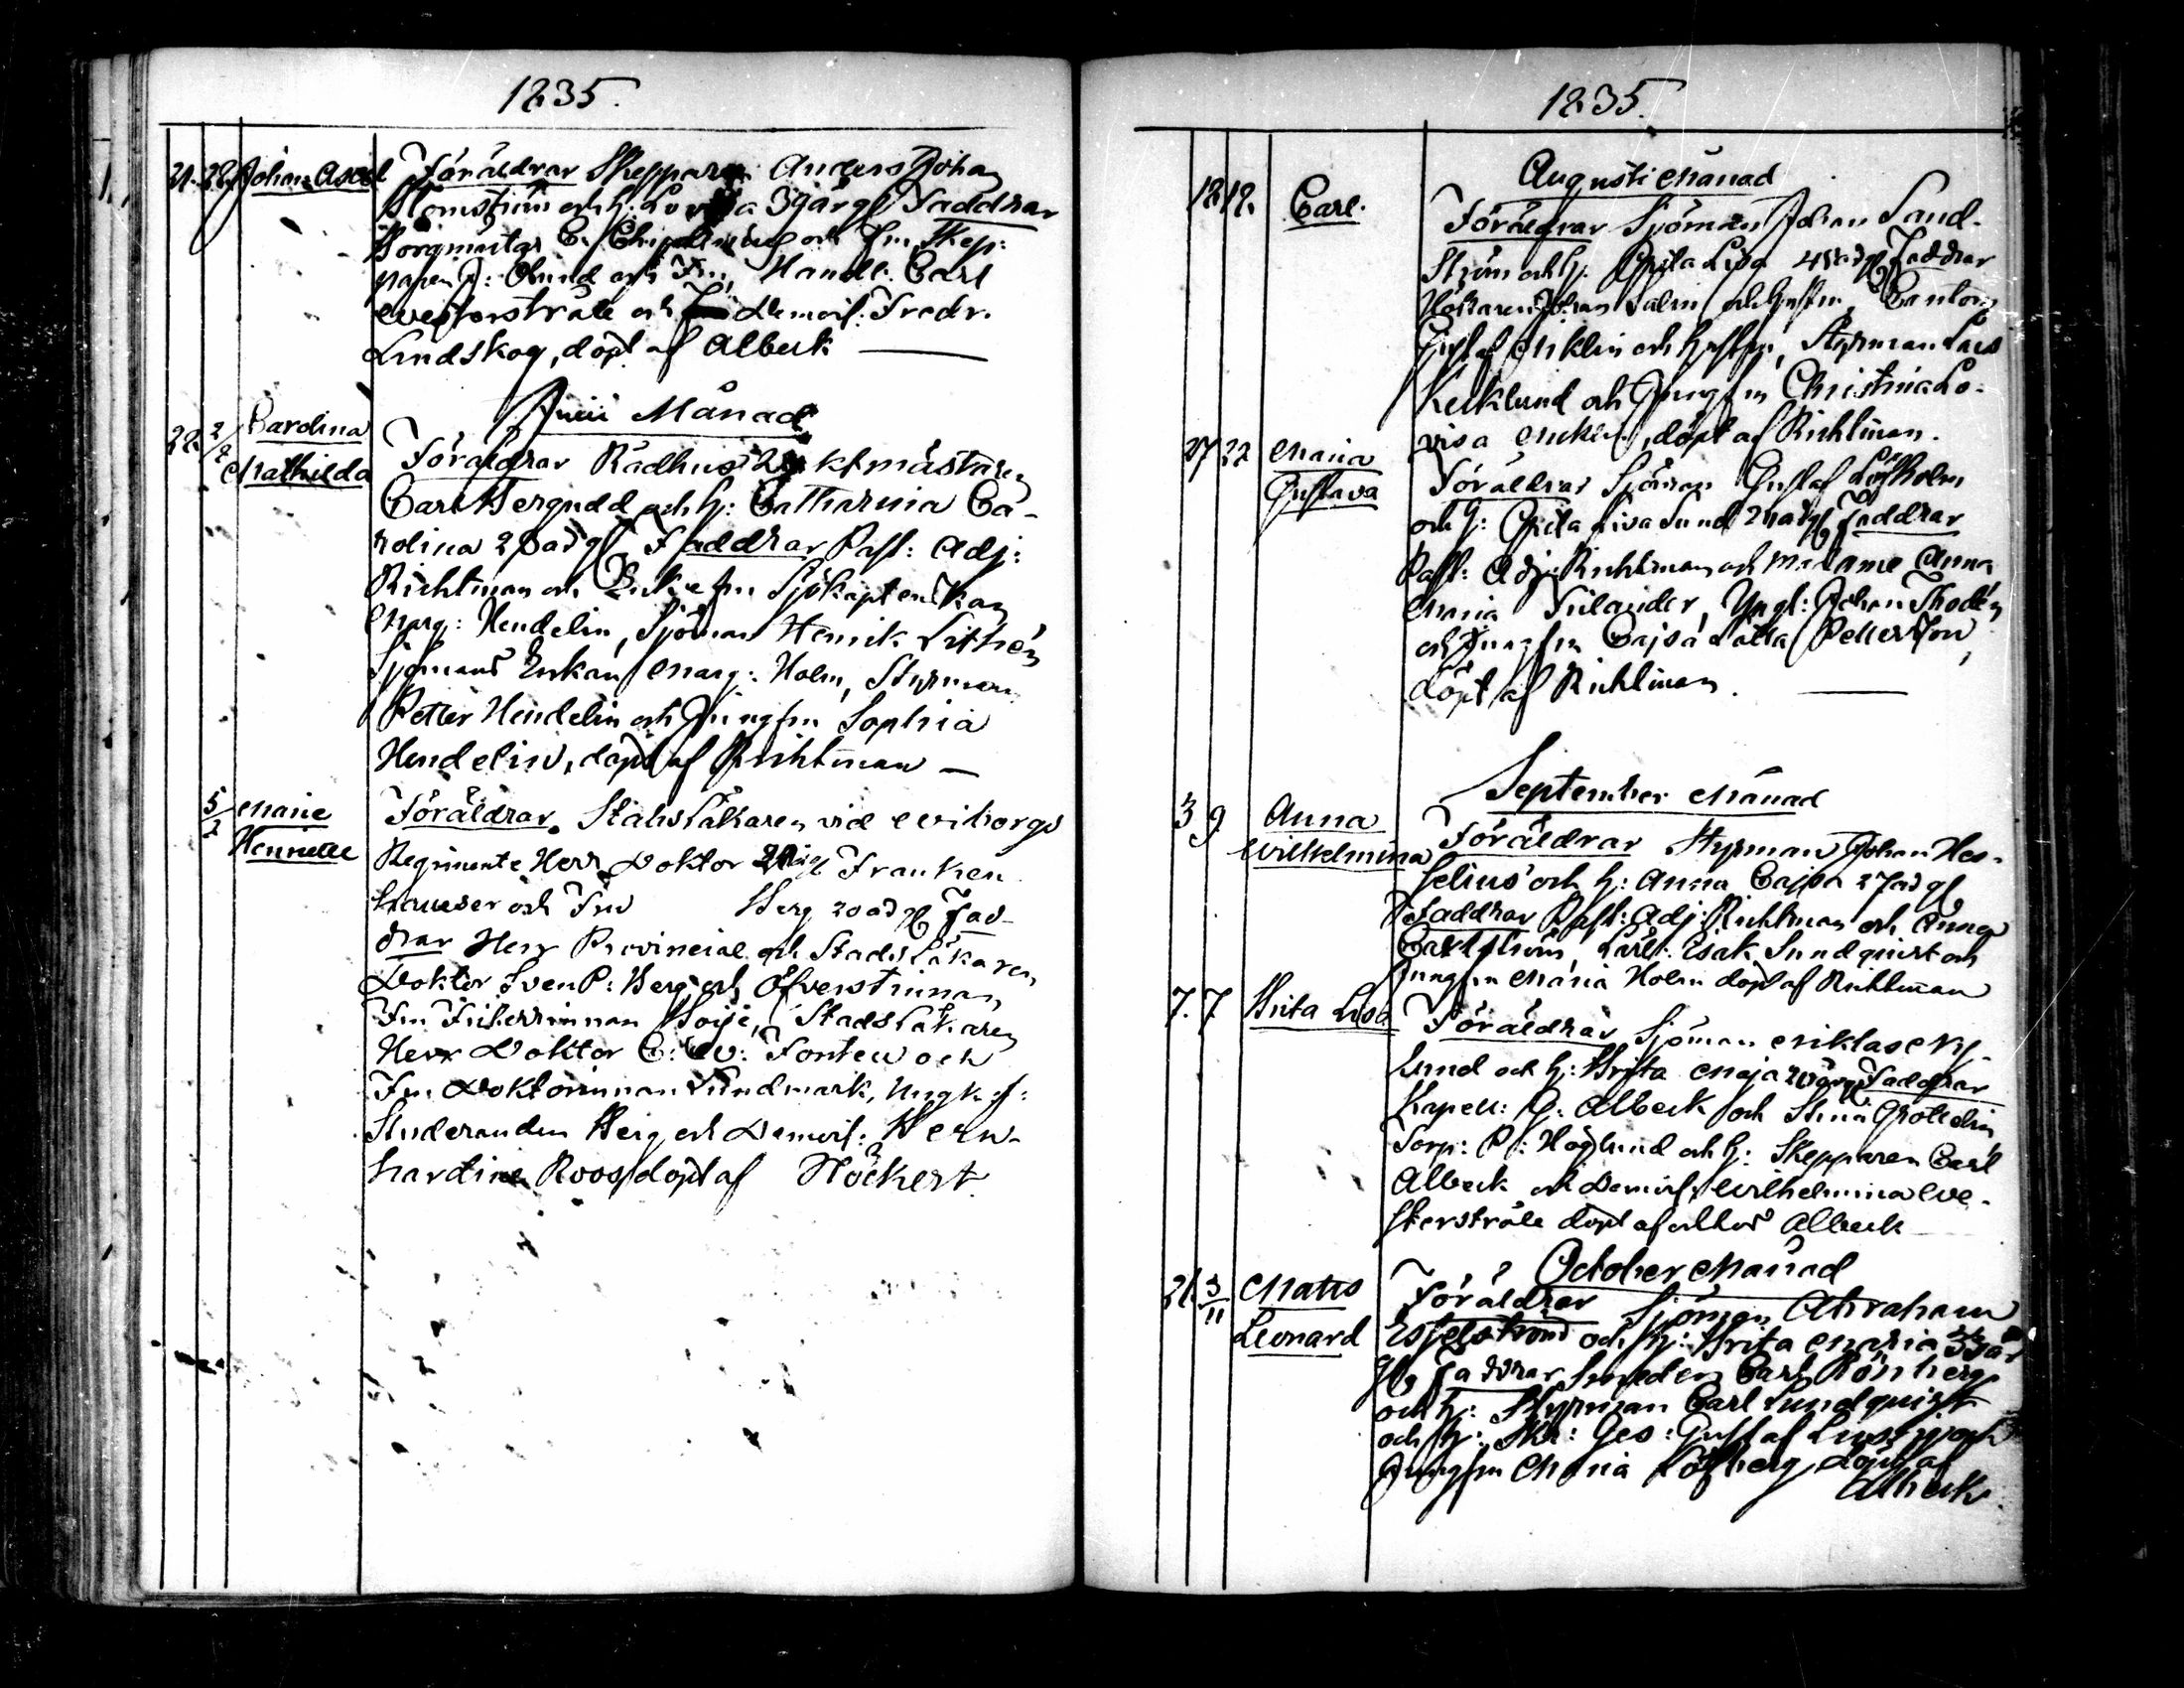 1835.
21. 28 Johan Axel Föräldrar Skepparen Anders Johan
Blomström och h: Lovisa 39 år gl Faddrar
Borgmästar C. och Fru, Skep-
paren J: Lund och Fru, Handl: Carl
Westerstråle och Demois: Fredr.
Lindskog, döpt af Albeck
Junii Månad
22. 2/7 Carolina Mathilda Föräldrar Rådhus Vaktmästaren
Carl Bergudd och h: Catharina Ca-
rolina 28 år gl Faddrar Past: Adj:
Richtman och Enkefru Sjökaptenskan
Marg: Hendelin, Sjöman Henrik Lithén
Sjömans Enkan Marg: Holm, Styrman
Petter Hendelin och Jungfru Sophia
Hendelin, döpt af Richtman
5/7 Marie Henriette Föräldrar Stabsläkaren vid Wiborgs
Regimente Herr Doktor Franken
haueser och Fru Berg 20 år gl Fad-
drar Herr Provincial och Stads Läkaren
Doktor Sven P: Berg och Öfverstinnan
Fru Friherrinnan Boije, Stads Läkaren
Herr Doktor C: W: Fontell och
Fru Doktorinnan Lundmark, Ungk:
Studeranden Berg och Demois: Bern-
hardine Roos döpt af Höckert.
1835.
Augusti Månad
18 18. Carl. Föräldrar Sjöman Johan Sand-
ström och h: Greta Lisa 45 år gl Faddrar
Hökaren Johan Salin och hustru, Cantorn
Gustaf Miklin och hustru, Styrman Lars
Kecklund och Jungfru Christina Lo-
visa Miklin, döpt af Richtman.
17 22 Maria Gustava Föräldrar Sjöman Gustaf Löfholm
och h: Greta Lisa Lund år gl Faddrar
Past: Adj: Richtman och Madame Anna
Maria Filander, Yngl: Johan Thodén
och Jungfru Cajsa Lotta Petterson,
döpt af Richtman.
September Månad
3 9 Anna Wilhelmina Föräldrar Styrman Johan Hes-
selius och h: Anna Cajsa 27 år gl
Faddrar Past: Adj: Richtman och Anna
Carlström, Lärl: Esak Sundquist och
Jungfru Maria Holm döpt af Richtman
7. 7 Brita Lisa Föräldrar Sjöman Niklas Ny-
lund och h: Brita Maja år gl Faddrar
Kapell: G: Albeck och Stina Grottelin
Torp: P: Höglund och h: Skepparen Carl
Albeck och Demois: Wilhelmina We-
sterstråle döpt af Albeck
October Månad
21. 3/11 Matts Leonard Föräldrar Sjöman Abraham
Esselström och h: Brita Maria 33 år
gl, Faddrar Smeden Carl Rönberg
och h: Styrman Carl Sundquist
och h: Skr: Ges: Gustaf Lustig och
Jungfru Maria Löfberg döpt af
Albeck.